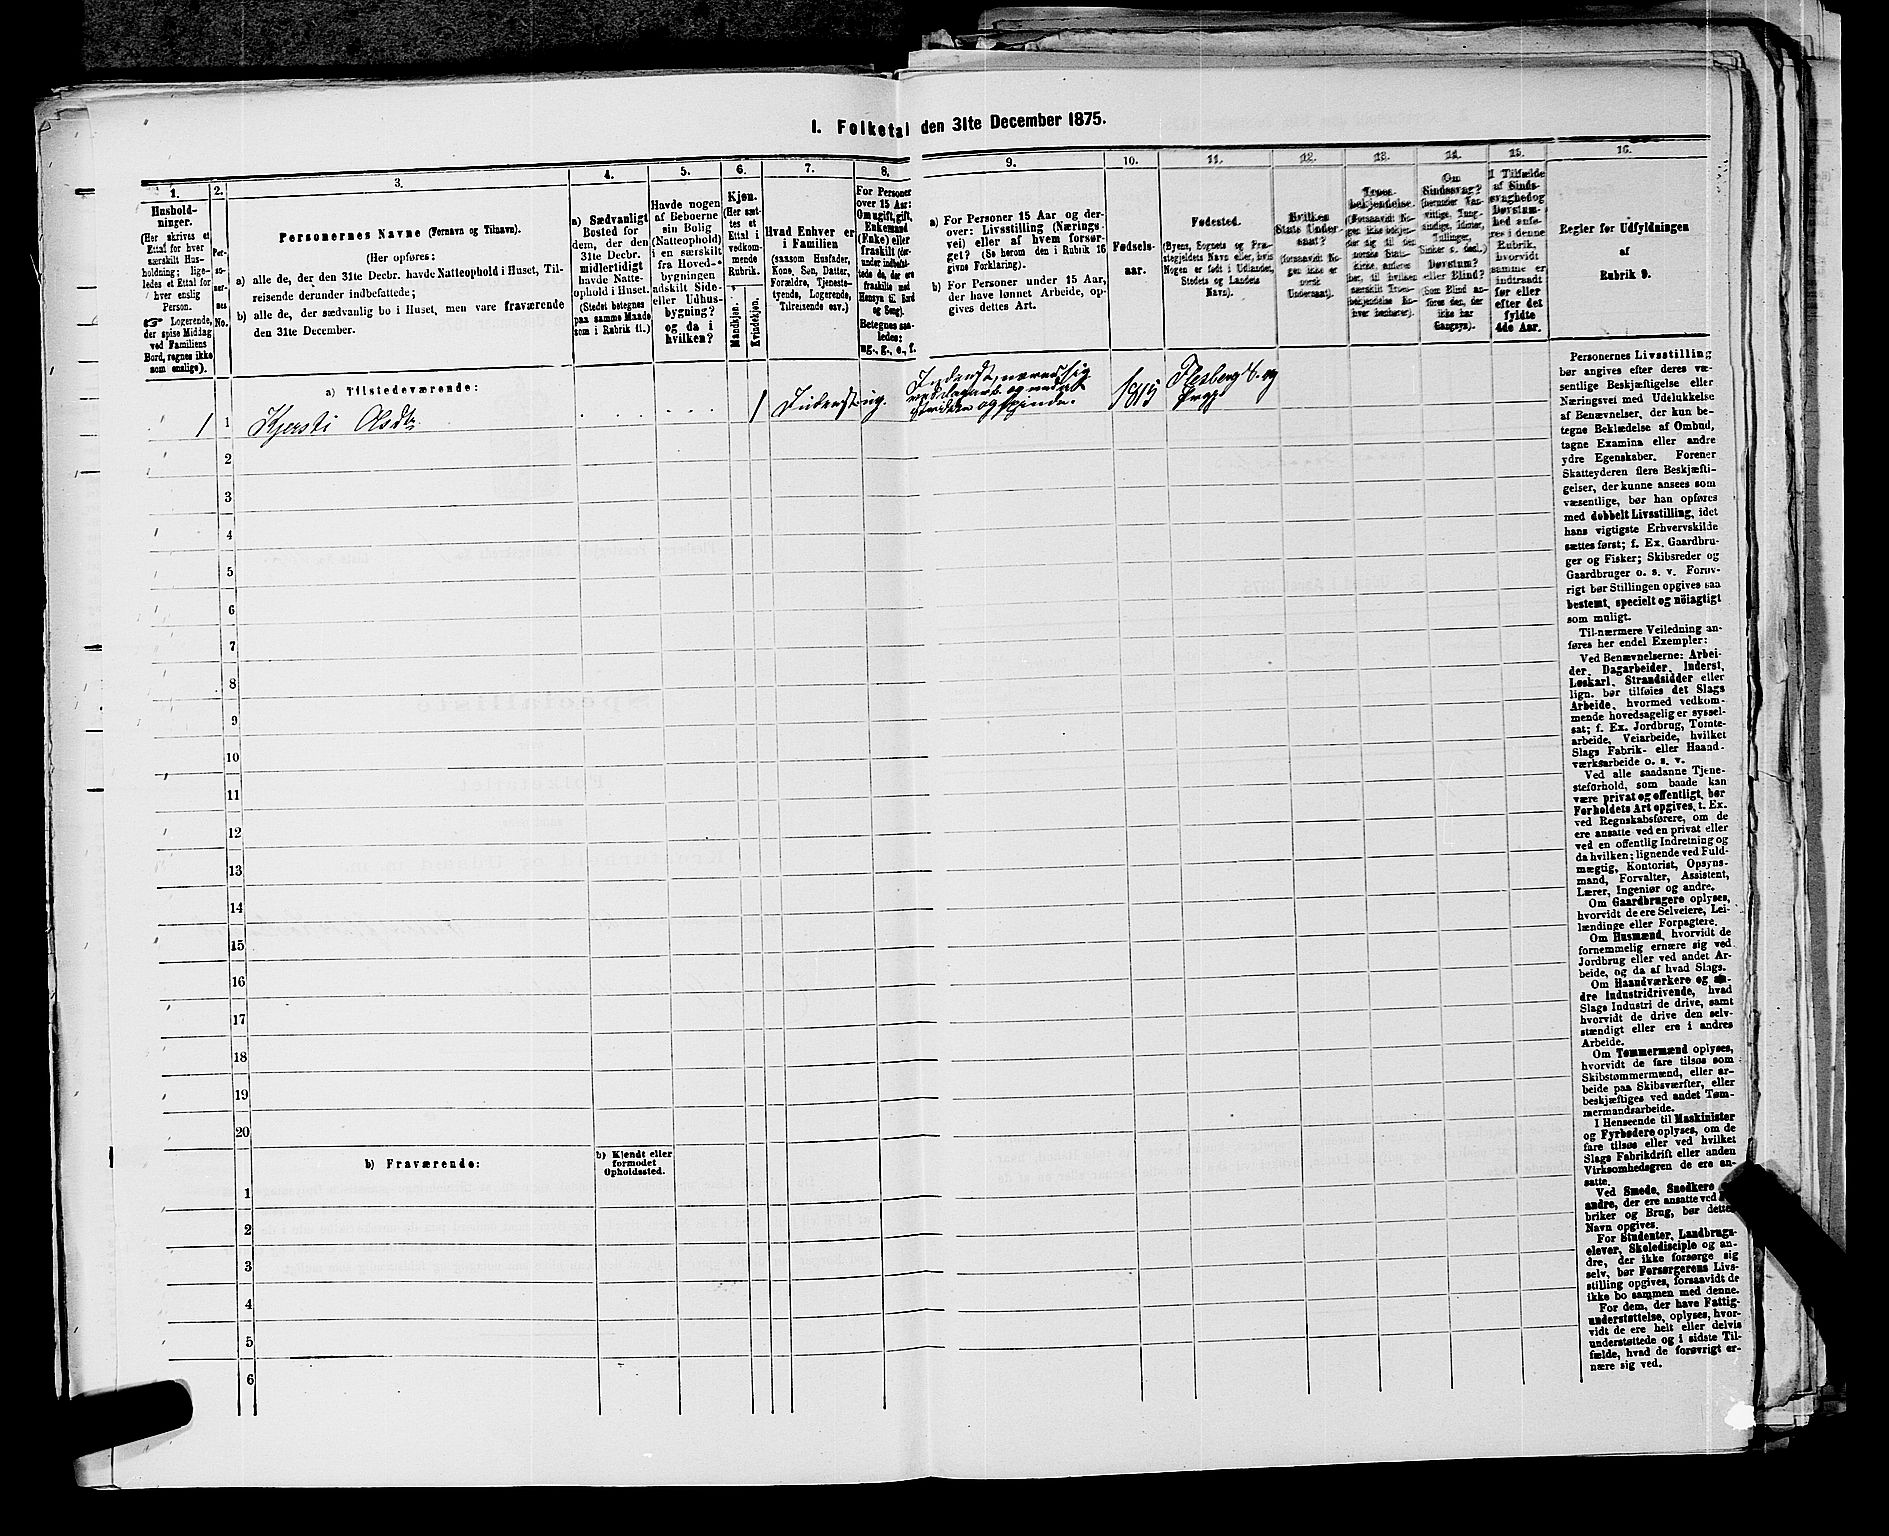 1. Folketal den 31te December 1875.
1.
Hushold-
ninger.
(Her skrives et
Ettal for hver
særskilt Hus-
holdning; lige-
ledes et Ettal for
hver enslig
Person.
☞ Logerende,
der spise Middag
ved Familiens
Bord, regnes ikke
som enslige).
2.
Per-
so-
ner-
nes
No.
3.
Personernes Navne (Fornavn og Tilnavn).
(Her opføres:
a) alle de, der den 31te Decbr. havde Natteophold i Huset, Til-
reisende derunder indbefattede;
b) alle de, der sædvanlig bo i Huset, men vare fraværende
den 31te December.
4.
a) Sædvanligt
Bosted for
dem, der den
31te Decbr.
midlertidigt
havde Natte-
ophold i Huset.
(Stedet betegnes
paa samme Maade
som i Rubrik 11.)
5.
Havde nogen
af Beboerne
sin Bolig
(Natteophold)
i en særskilt
fra Hoved-
bygningen
adskilt Side-
eller Udhus-
bygning?
og da i
hvilken?
6.
Kjøn.
(Her sæt-
tes et
Ettal i
vedkom-
mende
Rubrik.
Mandkjøn.
Kvindekjøn.
7.
Hvad Enhver er
i Familien
(saasom Husfader,
Kone, Søn, Datter,
Forældre, Tjeneste-
tyende, Logerende,
Tilreisende osv.)
8.
For Personer
over 15 Aar:
Om ugift, gift,
Enkemand
(Enke) eller
fraskilt (der-
under indbefat-
tede de, der ere
fraskilte med
Hensyn til Bord
og Seng).
Betegnes saa-
ledes:
ug., g., e., f.
9.
a) For Personer 15 Aar og der-
over: Livsstilling (Nærings-
vei) eller af hvem forsør-
get? (Se herom den i Rubrik 16
givne Forklaring).
b) For Personer under 15 Aar,
der have lønnet Arbeide, op-
gives dettes Art.
10.
Fødsels-
aar.
11.
Fødested.
(Byens, Sognets og Præ-
stegjeldets Navn eller, hvis
Nogen er født i Udlandet,
Stedets og Landets
Navn).
12.
Hvilken
Stats Under-
saat?
(forsaavidt No-
gen ikke er
norsk
Undersaat).
13.
Troes-
bekjendelse.
(Forsaavidt No-
gen ikke bekjen-
der sig til den
norske Stats-
kirke, anføres
her, til hvilket
særskilt Troes-
bekjendelse En-
hver henhører).
14.
Om
Sindssvag?
(herunder Van-
vittige, Tung-
sindige, Idioter,
Tullinger,
Sinker o. desl.)
Døvstum?
eller Blind?
(Som Blind an-
føres den, der
ikke har
Gangsyn).
15.
I Tilfælde
af Sinds-
svaghed og
Døvstum-
hed anfø-
res i denne
Rubrik,
hvorvidt
samme er
indtraadt
før eller
efter det
fyldte
4de Aar.
16.
Regler for Udfyldningen
af
Rubrik 9.
a) Tilstedeværende:
1 1 Kjersti Olsdtr 1 Inderst ug. Inderst, nærer sig
ved og ved at
strikke og spinde. 1815 Flesberg S. og
Prgj
2
3
4
5
6
7
8
9
10
11
12
13
14
15
16
17
18
19
20
b) Fraværende:
b) Kjendt eller
formodet
Opholdssted.
1
2
3
4
5
6
Personernes Livsstilling
bør angives efter deres væ-
sentlige Beskjæftigelse eller
Næringsvei med Udelukkelse
af Benævnelser, der kun be-
tegne Beklædelse af Ombud,
tagne Examina eller andre
ydre Egenskaber. Forener
Skatteyderen flere Beskjæfti-
gelser, der kunne ansees som
væsentlige, bør han opføres
med dobbelt Livsstilling, idet
hans vigtigste Erhvervskilde
sættes først; f. Ex. Gaardbru-
ger og Fisker; Skibsreder og
Gaardbruger o. s. v. Forøv-
rigt bør Stillingen opgives saa
bestemt, specielt og nöiagtigt
som muligt.
Til nærmere Veiledning an-
føres her endel Exempler:
Ved Benævnelserne: Arbei-
der, Dagarbeider, Inderst,
Løskarl, Strandsidder eller
lign. bør tilføies det Slags
Arbeide, hvormed vedkom-
mende hovedsagelig er syssel-
sat; f. Ex. Jordbrug, Tomte-
arbeide, Veiarbeide, hvilket
Slags Fabrik- eller Haand-
værksarbeide o. s. v.
Ved alle saadanne Tjene-
steforhold, som baade kan
være privat og offentligt, bør
Forholdets Art opgives, t. Ex.
ved Regnskabsførere, om de
ere ansatte ved en privat eller
ved en offentlig Indretning og
da hvilken; lignende ved Fuld-
mægtig, Kontorist, Opsyns-
mand, Forvalter, Assistent,
Lærer, Ingeniør og andre.
Om Gaardbrugere oplyses,
hvorvidt de ere Selveiere, Lei-
lændinge eller Forpagtere.
Om Husmænd, hvorvidt de
fornemmelig ernære sig ved
Jordbrug eller ved andet Ar-
beide, og da af hvad Slags.
Om Haandværkere og an-
dre Industridrivende, hvad
Slags Industri de drive, samt
hvorvidt de drive den selv-
stændigt eller ere i andres
Arbeide.
Om Tømmermænd oplyses,
hvorvidt de fare tilsøs som
Skibstømmermænd, eller ar-
beide paa Skibsværfter, eller
beskjæftiges ved andet Tøm-
mermandsarbeide.
I Henseende til Maskinister
og Fyrbødere oplyses, om de
fare tilsøs eller ved hvilket
Slags Fabrikdrift eller anden
Virksomhedsgren de ere an-
satte.
Ved Smede, Snedkere
andre, der ere ansatte ved
briker og Brug, bør dettes
Navn opgives.
For Studenter, Landbrugs-
elever, Skoledisciple og an-
dre, der ikke forsørge sig
selv, bør Forsørgerens Livs-
stilling opgives, forsaavidt de
ikke bo sammen med denne.
For dem, der have Fattig-
understøttelse, oplyses, hvor-
vidt de ere helt eller delvis
understøttede og i sidste Til-
fælde, hvad de forøvrigt er-
nære sig ved.